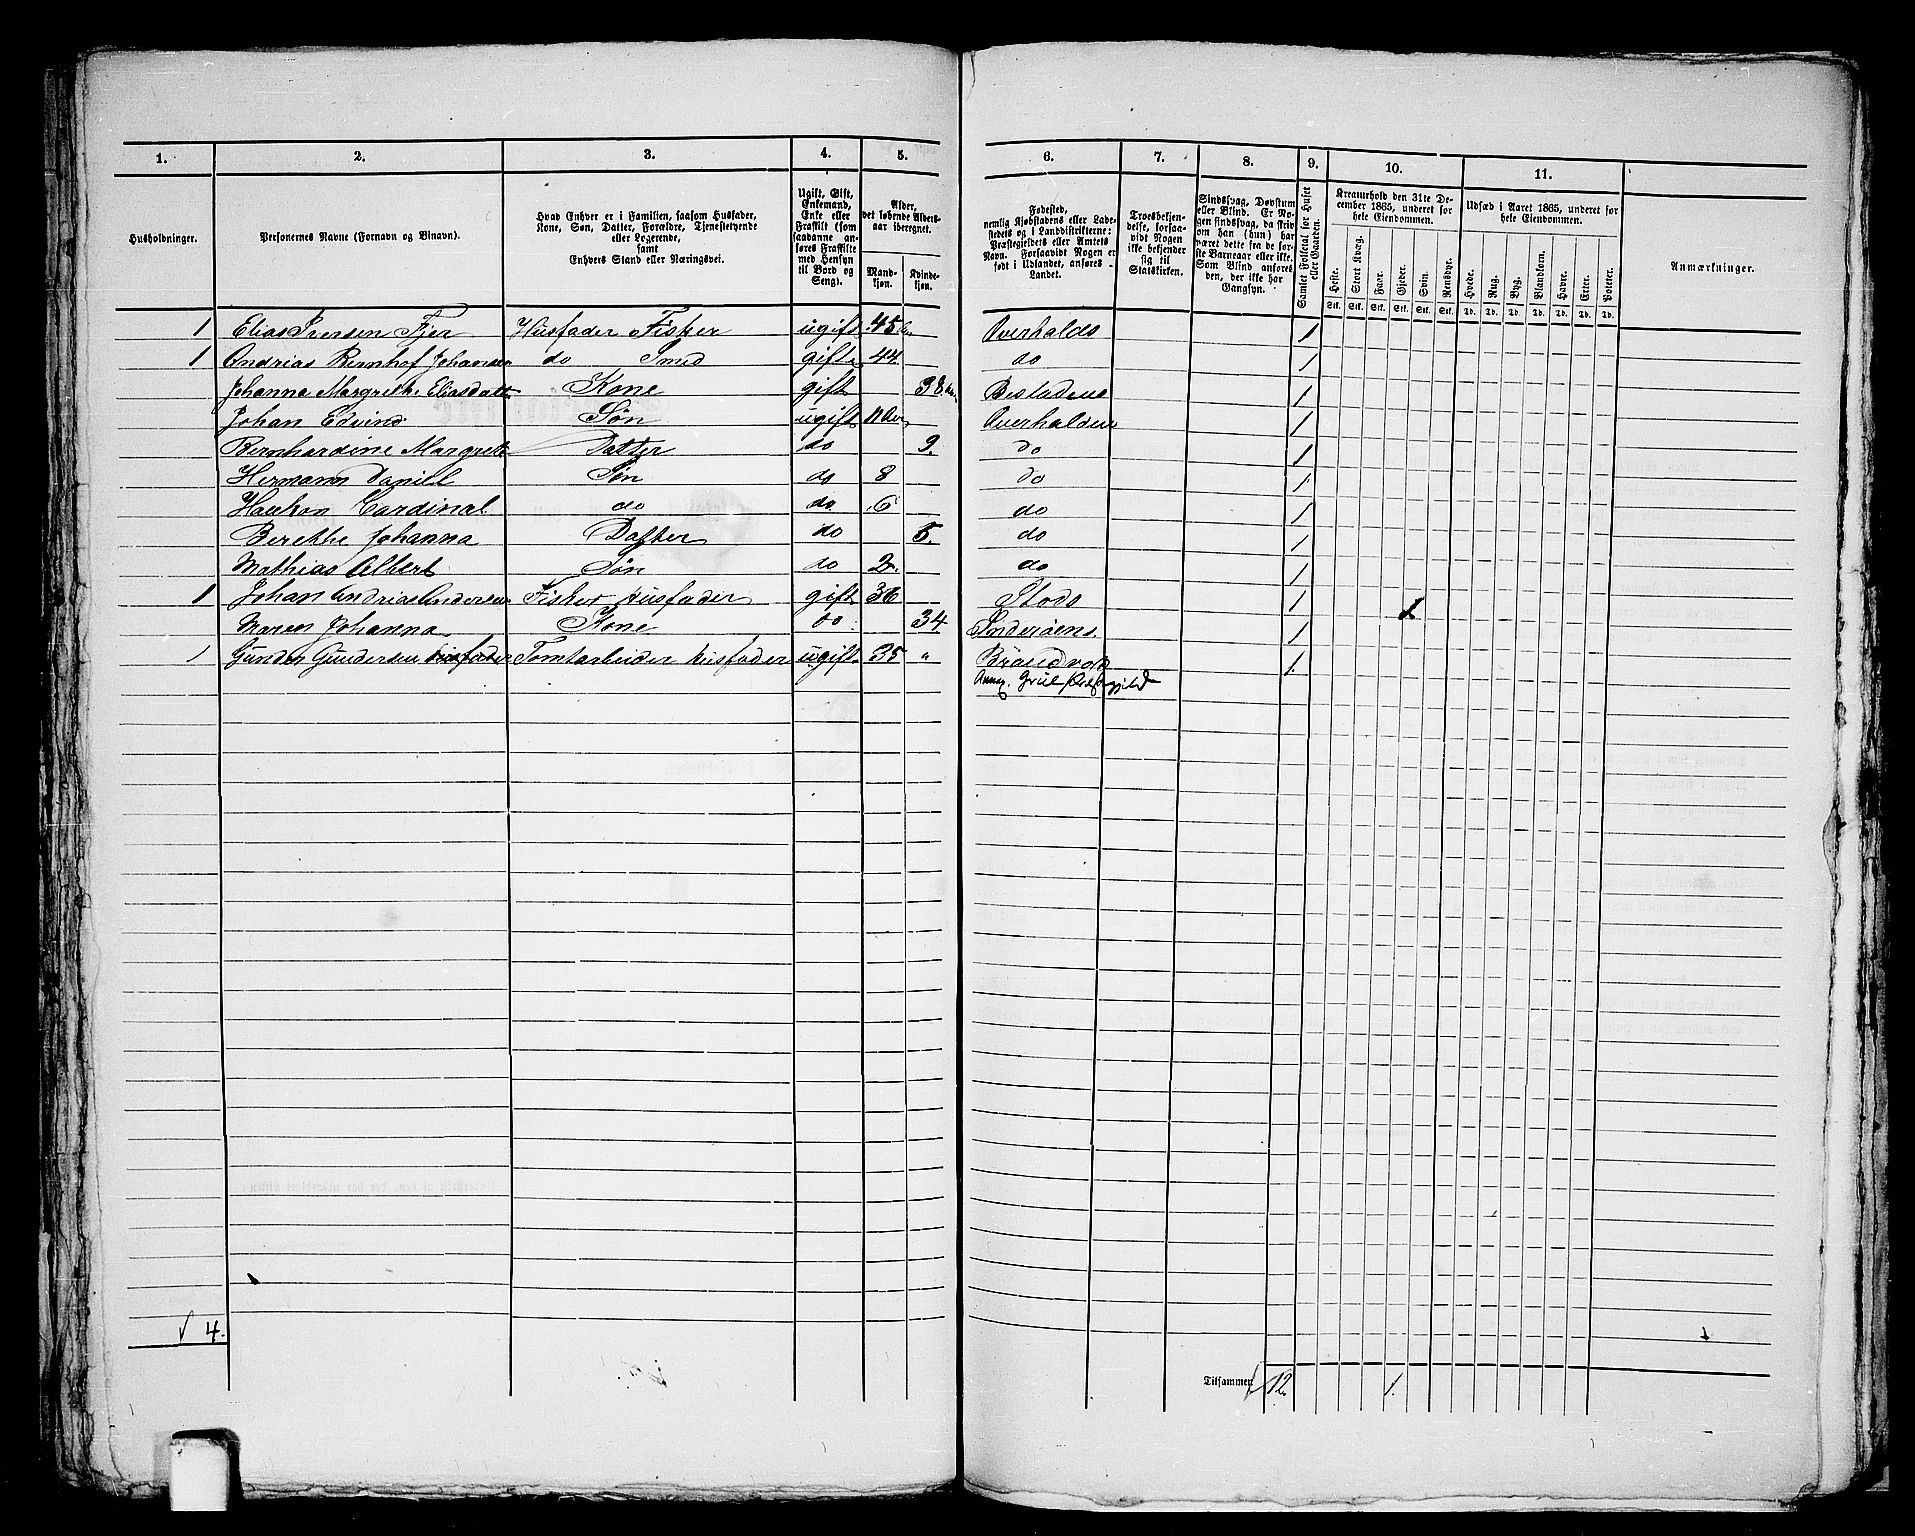 1. 2. 3. 4. 5. 6. 7. 8. 9. 10. 11.
Husholdninger.
Personernes Navne (Fornavn og Binavn).
Hvad Enhver er i Familien, saasom Husfader,
Kone, Søn, Datter, Forældre, Tjenestetyende
eller Logerende,
samt
Enhvers Stand eller Næringsvei.
Ugift, Gift,
Enkemand,
Enke eller
Fraskilt (som
saadanne an-
føres Fraskilte
med Hensyn
til Bord og
Seng).
Alder,
det løbende Alders-
aar iberegnet.
Mand-
kjøn.
Kvinde-
kjøn.
Fødested,
nemlig Kjøbstadens eller Lade-
stedets og i Landdistrikterne:
Præstegjeldets eller Amtets
Navn. Forsaavidt Nogen er
født i Udlandet, anføres
Landet.
Troesbekjen-
delse, forsaa-
vidt Nogen
ikke bekjender
sig til
Statskirken.
Sindssvag, Døvstum
eller Blind. Er No-
gen sindssvag, da skriv
om han (hun) har
været dette fra de før-
ste Barneaar eller ikke.
Som Blind anføres
den, der ikke har
Gangsyn.
Samlet Folketal for Huset
eller Gaarden.
Kreaturhold den 31te De-
cember 1865, underet for
hele Eiendommen.
Heste. Stort Kvæg. Faar. Gjeder. Svin. Rensdyr.
Stk. Stk. Stk. Stk. Stk. Stk.
Udsæd i Aaret 1865, underet for
hele Eiendommen.
Hvede. Rug. Byg. Blandkorn. Havre. Erter. Poteter.
Td. Td. Td. Td. Td. Td. Td.
Anmærkninger.
1 Elias Iversen Fjer Husfader Fisker ugift 45 Overhalds 1
1 Andrias Bernhof Johansen do Smed gift 44 do 1
Johanna Margrethe Eliasdatt Kone gift 38 1
Johan Edvind Søn ugift 11 Overhalden 1
Bernhardine Margrete Datter do 9. do 1
Hermann Daniel Søn do 8 do 1
Haukon Cardinal do do 6 do 1
Berethe Johanna Datter do 5. do 1
Mathias Albert Søn do 2. do 1
1 Johan Andrias Andersen Fisker Husfader gift 36 Stods 1 1
Maren Johanna Kone do 34 Inderøens 1
1 Gunder Gundersen Husfader Tomtarbeider Husfader ugift 35 " 1.
4.
Tilsammen 12. 1.